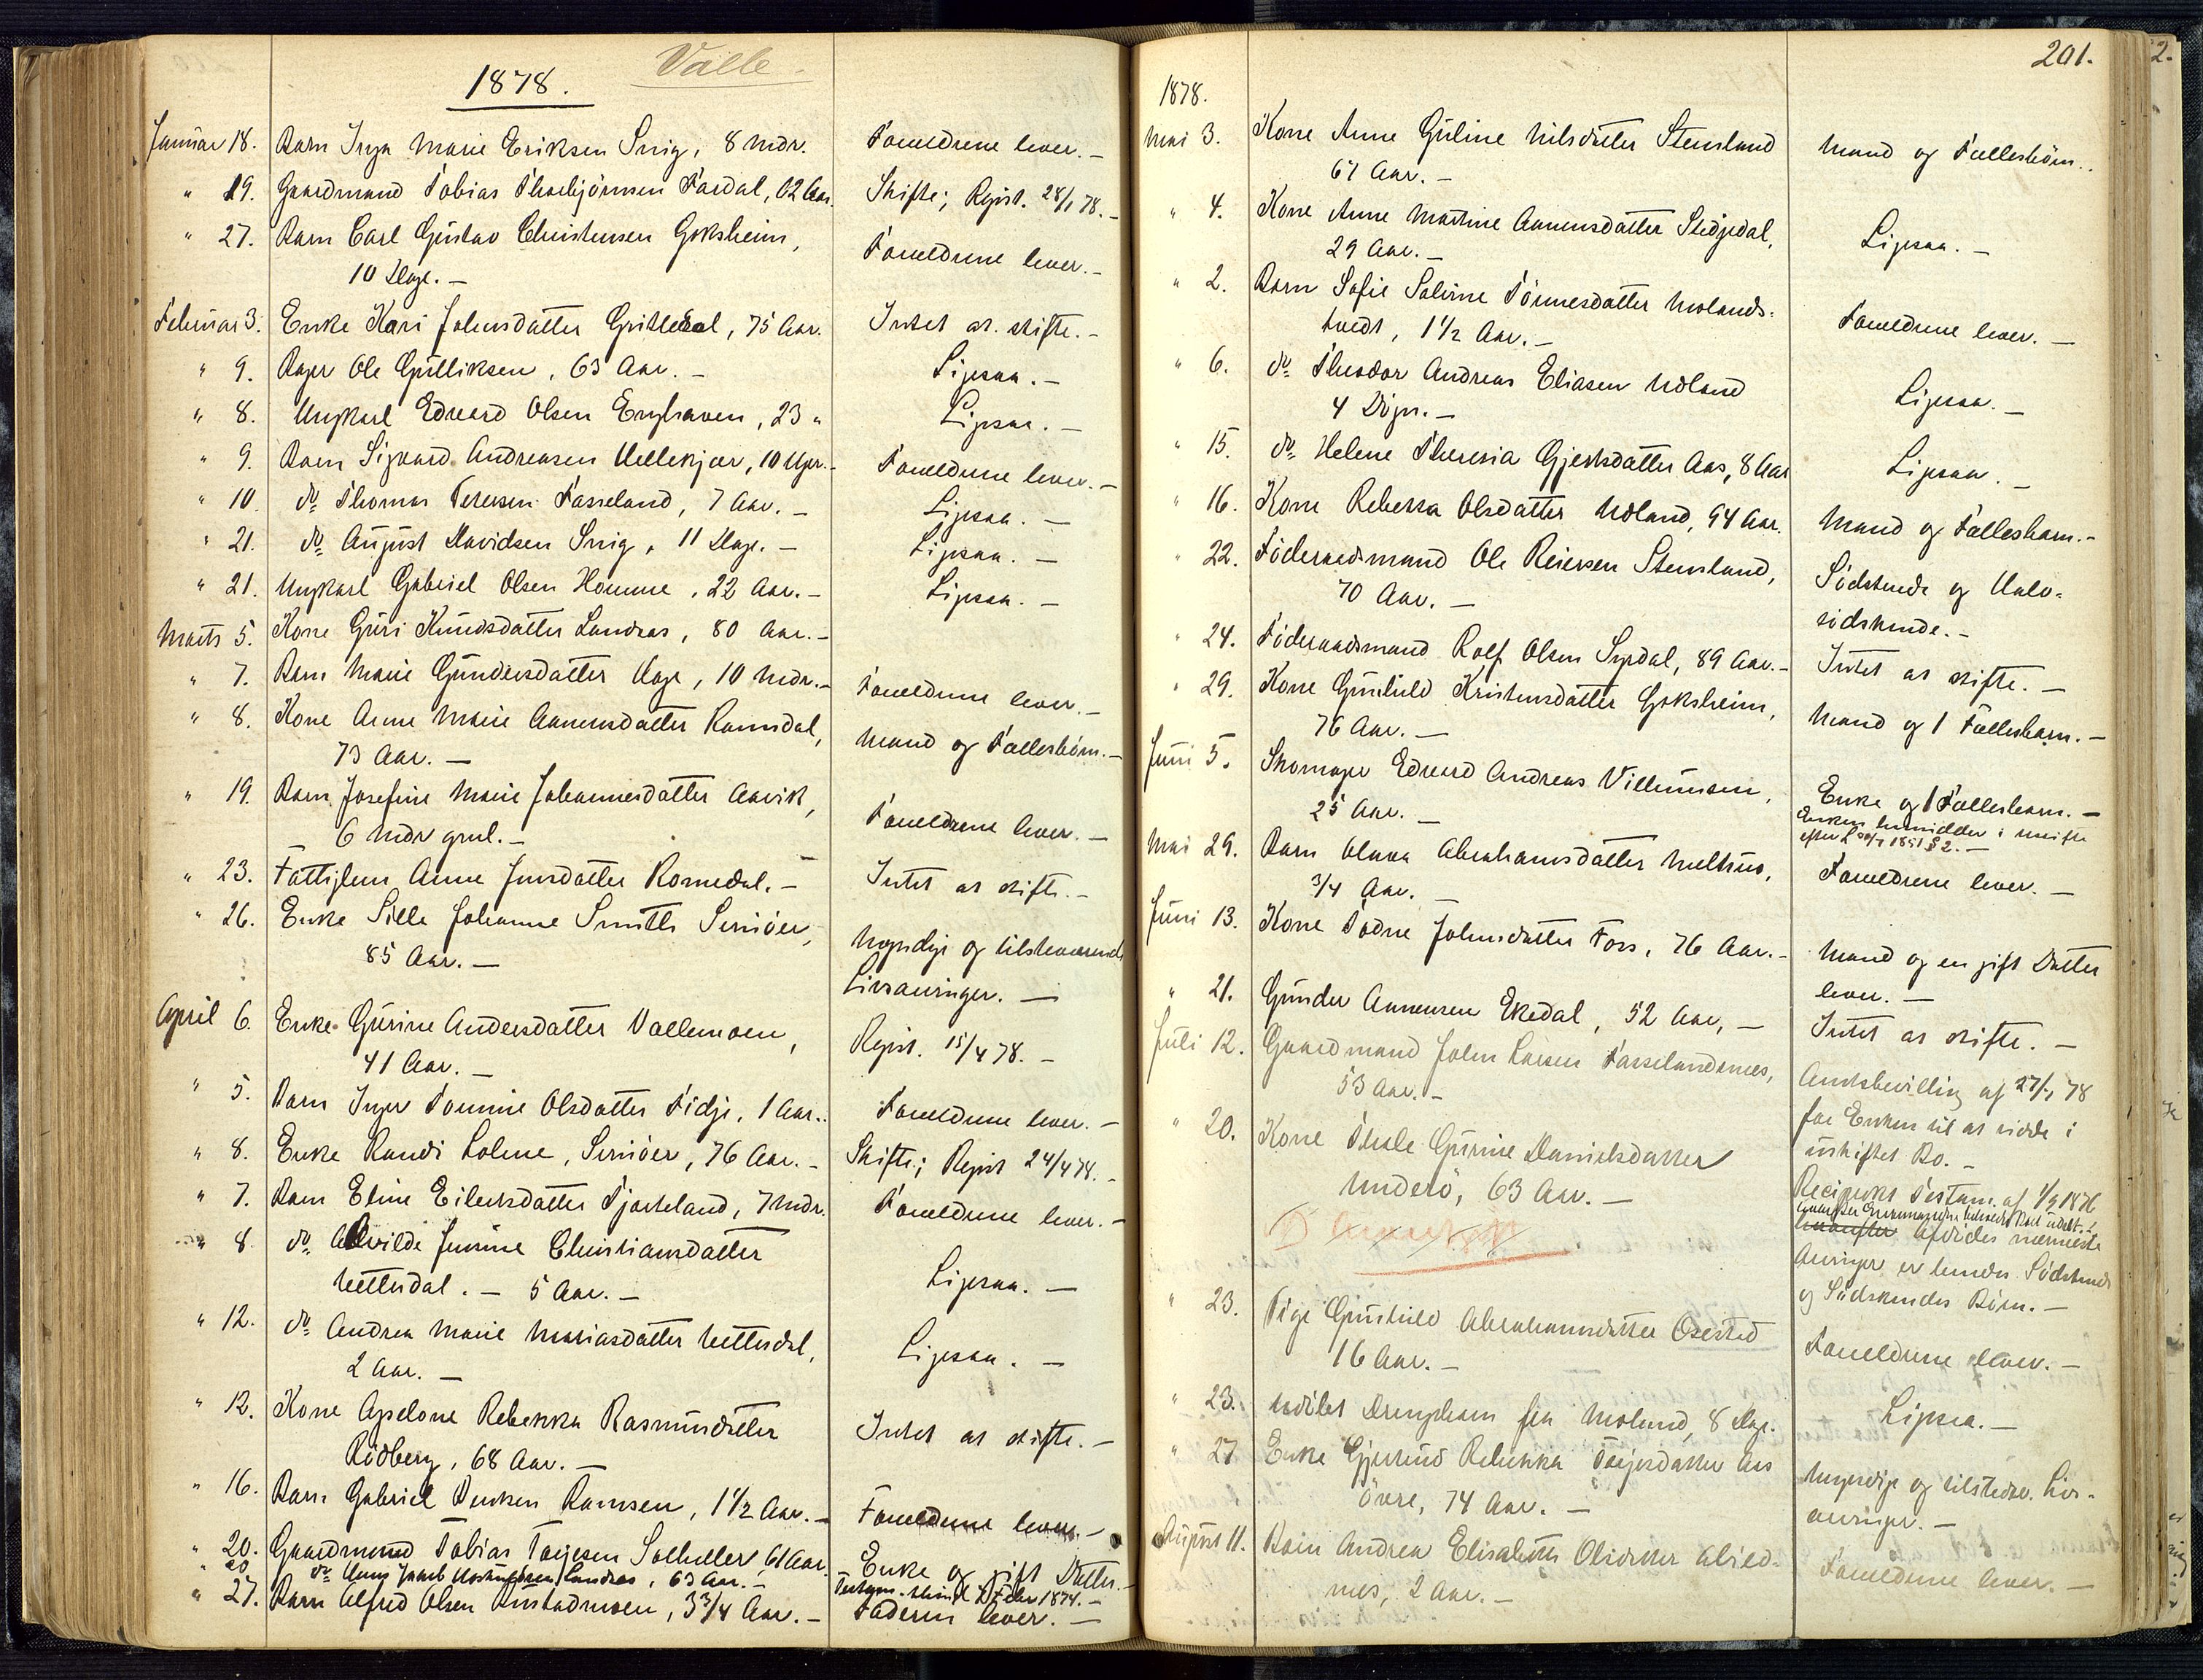 Valle
1878.
Januar 18. Barn Inga Marie Eriksen Snig, 8 Mdr. Forældrene lever. –
" 19. Gaardmand Tobias Thorbjörnsen Fardal, 62 Aar. Skifte; Regist. 28/1 78. –
" 27. Barn Carl Gustav Christensen Goksheim, Forældrene lever. –
10 Dage. –
Februar 3. Enke Kari Johnsdatter Grilledal, 75 Aar. Intet at skifte. –
" 9. Bager Ole Gulliksen, 63 Aar. – Ligesaa. –
" 8. Ungkarl Edvard Olsen Enghaven, 23 " Ligesaa. –
" 9. Barn Sigvard Andreasen Hellekjær, 10 Uger. – Forældrene lever. –
" 10. do Thomas Terersen Fasseland, 7 Aar. – Ligesaa. –
" 21. do August Davidsen Snig, 11 Dage. – Ligesaa. –
" 21. Ungkarl Gabriel Olsen Homme, 22 Aar. – Ligesaa. –
Marts 5. Kone Guri Knudsdatter Landaas, 80 Aar. –
" 7. Barn Marie Gundersdatter Uge, 10 Mdr. – Forældrene lever. –
" 8. Kone Anne Marie Aanensdatter Ramsdal, Mand og Fællesbörn. –
73 Aar. –
" 19. Barn Josefine Marie Johannesdatter Aavik, Forældrene lever. –
6 Mdr gml. –
" 23. Fattiglem Anne Jensdatter Romedal. – Intet at skifte. –
" 26. Enke Sille Johanne Smith Svinöer, Myndige og tilstedeværende
85 Aar. – Livsarvinger. –
April 6. Enke Gurine Andersdatter Vallemoen, Regist. 15/4 78. –
41 Aar. –
" 5. Barn Inger Tomine Olsdatter Fidje, 1 Aar. Forældrene lever. –
" 8. Enke Randi Lohne, Svinöer, 76 Aar. – Skifte; Regist 24/4 78. –
" 7. Barn Eline Eilertsdatter Tjorteland, 7 Mdr. Forældrene lever. –
" 8. do Alvilde Jensine Christiansdatter
Vettesdal. – 5 Aar. – Ligesaa. –
" 12. do Andrea Marie Mariasdatter Vettesdal, Ligesaa. –
2 Aar. –
" 12. Kone Apelone Rebekka Rasmusdatter Intet at skifte. –
Rödberg, 68 Aar. –
" 16. Barn Gabriel Bentsen Ramsen, 1 1/2 Aar. – Forældrene lever. –
" 20. Gaardmand Tobias Torjesen Solheller, 61 Aar. Enke og gift Datter. –
" 20 do Hans Jacob Landaas, 63 Aar. – Testam. 1874. –
" 27. Barn Alfred Olsen Bustadmoen, 3 3/4 Aar. – Faderen lever. –
201.
1878.
Mai 3. Kone Anne Guline Nilsdatter Stensland Mand og Fællesbörn. –
61 Aar. –
" 4. Kone Anne Martine Aanensdatter Stedjedal, Ligesaa. –
29 Aar. –
" 2. Barn Sofie Saline Tönnesdatter Molands-
tvedt, 1 1/2 Aar. – Forældrene lever. –
" 6. do Theodor Andreas Eliasen Udland Ligesaa. –
4 Dögn. –
" 15. do Helene Theresia Gjertsdatter Aas, 8 Aar Ligesaa. –
" 16. Kone Rebekka Olsdatter Udland, 94 Aar. Mand og Fællesbarn. –
" 22. Föderaadsmand Ole Reiersen Stensland, Södskende og Halv-
70 Aar. – södskende. –
" 24. Föderaadsmand Rolf Olsen Syrdal, 89 Aar. – Intet at skifte. –
" 29. Kone Gunhild Kristensdatter Goksheim, Mand og 1 Fællesbarn. –
76 Aar. –
Juni 5. Skomager Edvard Andreas Villumsen, Enke og 1 Fællesbarn. –
25 Aar. – Enken hensidder i uskifte
efter L 1851 § 2. –
Mai 29. Barn Olava Abrahamsdatter Melhus, Forældrene lever. –
3/4 Aar. –
Juni 13. Kone Todne Johnsdatter Foss, 76 Aar. – Mand og en gift Datter
lever. –
" 21. Gunder Aanensen Ekedal, 52 Aar, – Intet at skifte. –
Juli 12. Gaardmand John Larsen Fasselandsnes, Amtsbevilling af 27/7 78
53 Aar. – for Enken til at sidde i
uskiftet Bo. –
" 20. Kone Thale Gurine Danielsdatter Reciprokt Testam. af 1/9 1876
Underö, 63 Aar. –
Afdödes nærmeste
Arvinger er hendes Södskende
og Södskendes Börn. –
" 23. Pige Gunhild Abrahamsdatter Osestad Forældrene lever. –
16 Aar. –
" 23. Udöbt Drengebarn fra Moland, 8 Dage. Ligesaa. –
" 27 Enke Gjertrud Rebekka Torjesdatter Aas Myndige og tilstedev. Livs-
övre, 74 Aar. – arvinger. –
August 11. Barn Andrea Elisabeth Olsdatter Abild-
nes, 2 Aar. – Forældrene lever. –